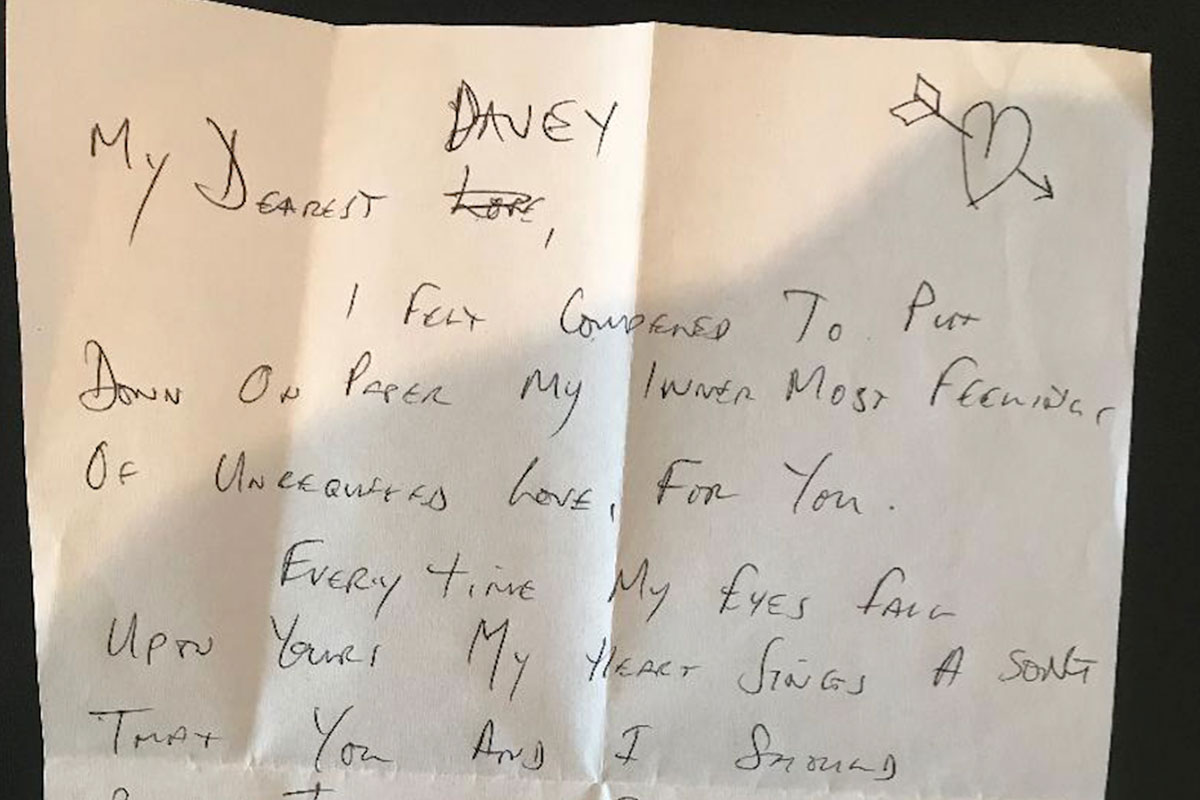 DAVEY
My DEAREST LOVE,
I FELT COMPELLED TO PUT
DOWN ON PAPER MY INNER MOST FEELINGS
OF UNREQUITED LOVE, FOR YOU.
EVERY TIME MY EYES FALL
UPON YOURS MY HEART SINGS A SONG
THAT YOU AND I SHOULD